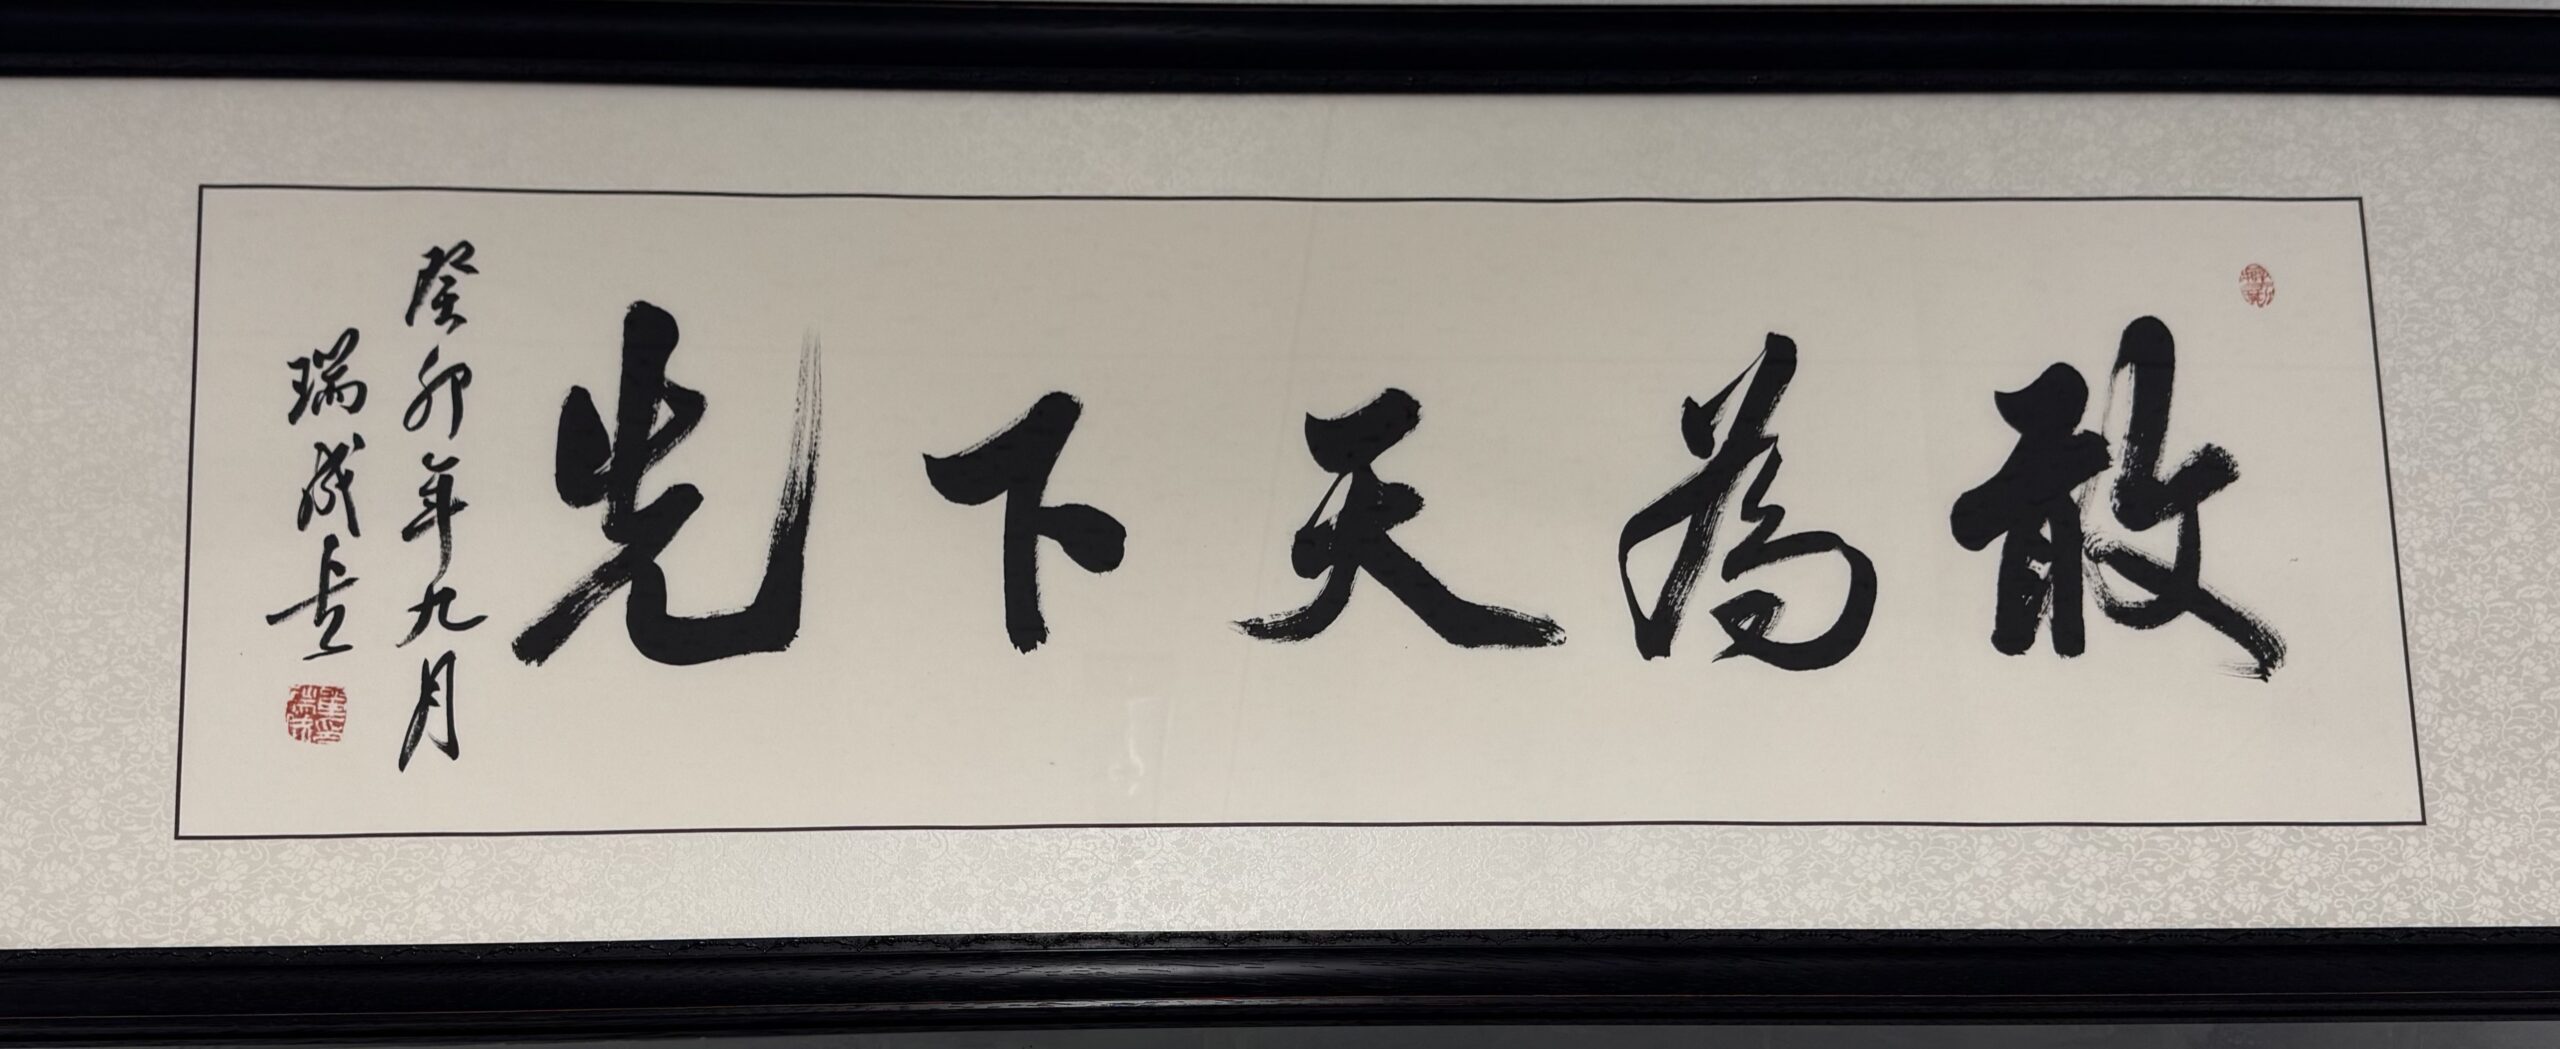 敢為天下先
癸卯年九月
瑞成書